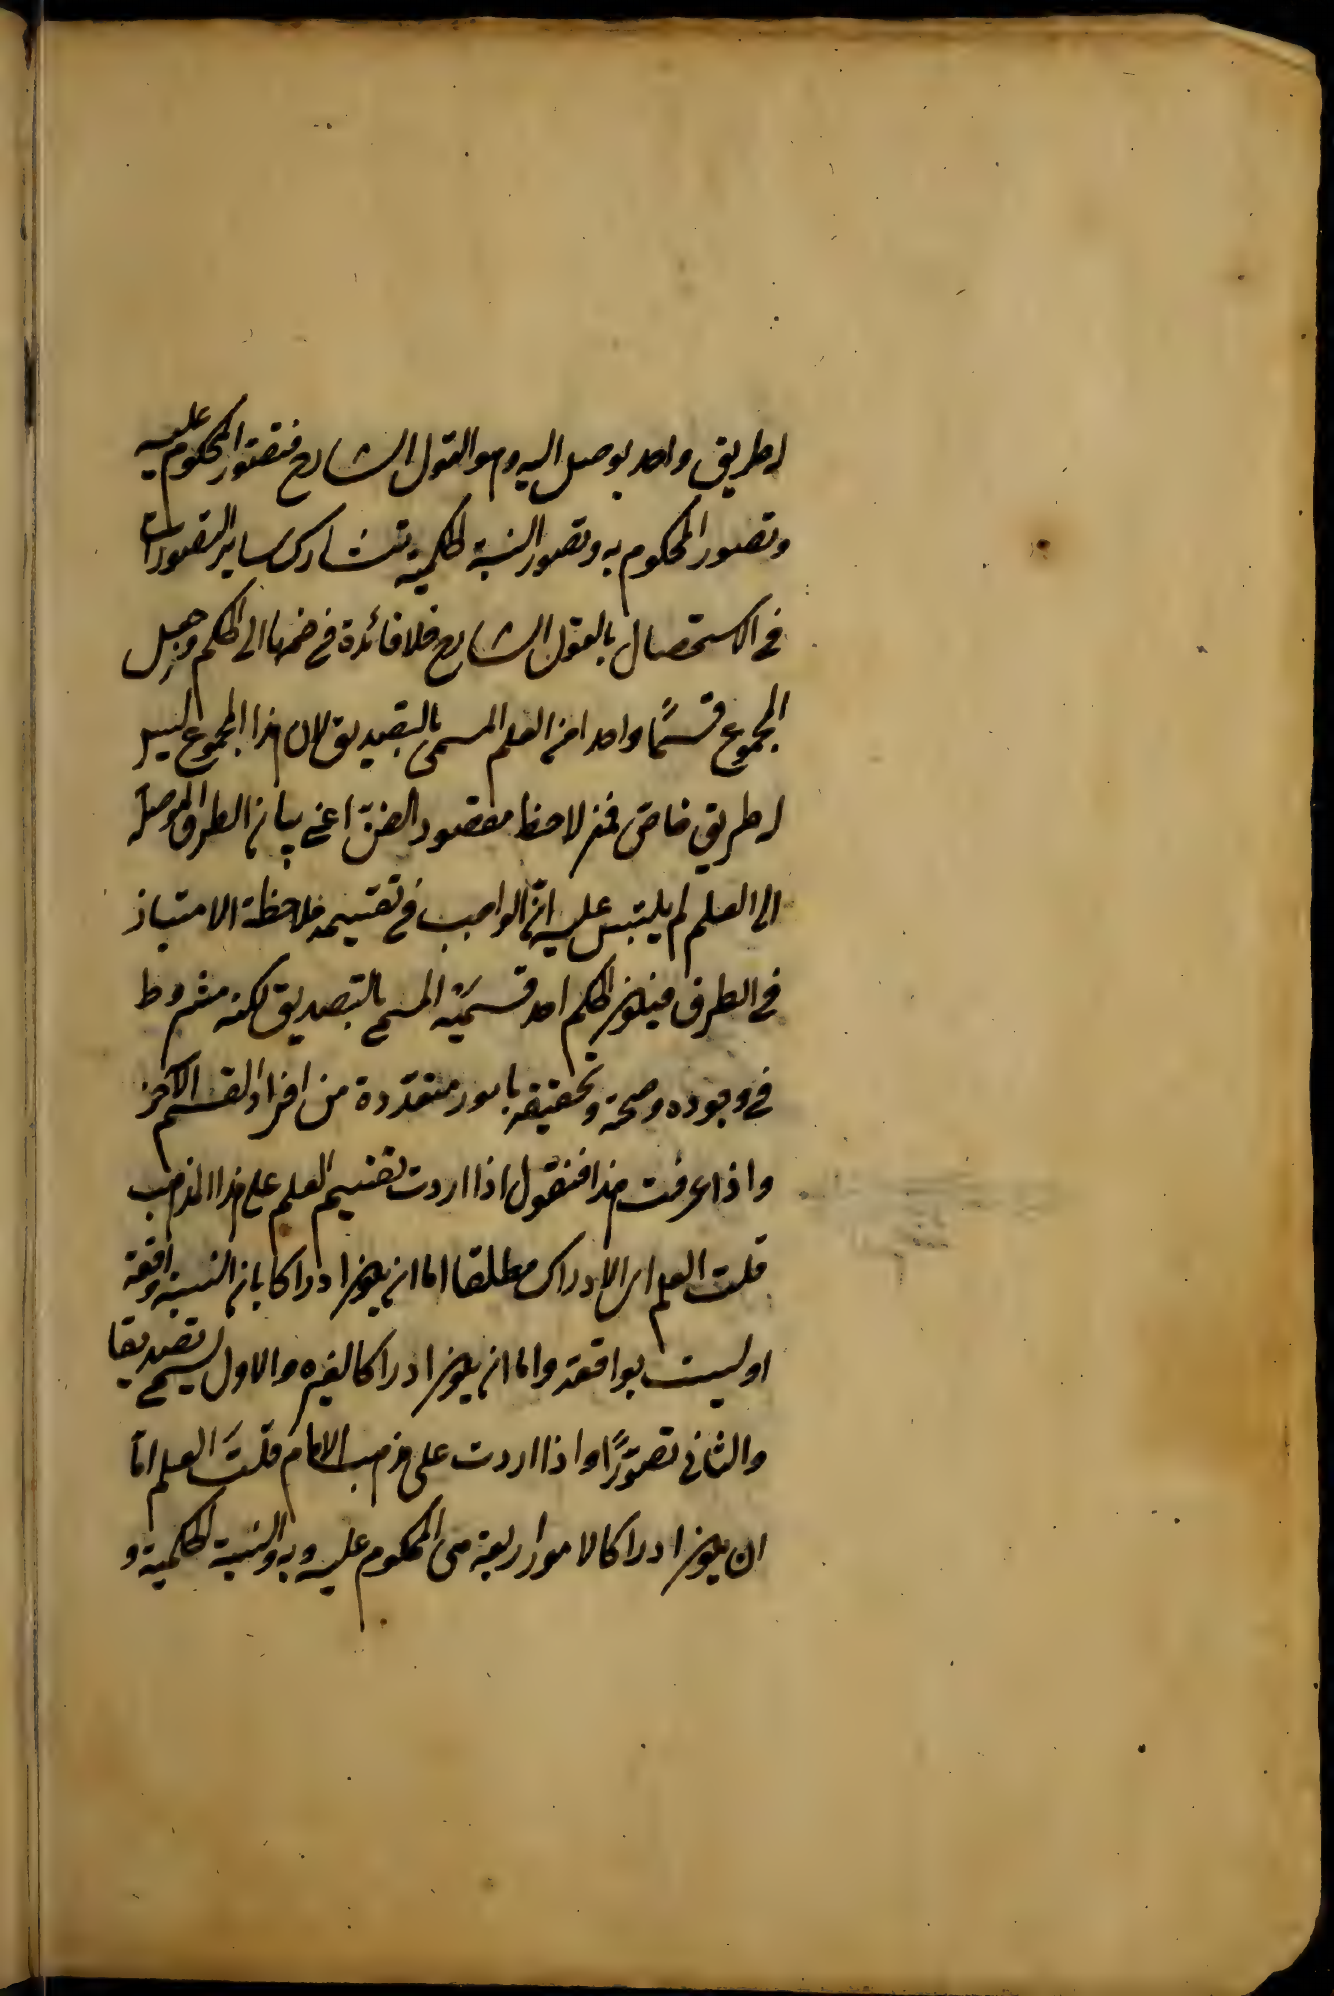 له طريق واحد يوصل اليه وهو القول الشارح فتصور المحكوم عليه
وتصور المحكوم به وتصور النسبة الحكمية تشارك ساير التصورات
في الاستحصال بالقول الشارح فلا فائدة في ضمها الى الحكم وجعل
المجموع قسمًا واحدا من العلم المسمى بالتصديق لان هذا المجموع ليس
له طريق خاص فمن لاحظ مقصود الفنّ اعني بيان الطرق الموصلة
الى العلم لم يلتبس عليه انّ الواجب في تقسيمه ملاحظة الامتياز
في الطرق فيكون الحكم احد قسميه المسمى بالتصديق لكنه مشروط
في وجوده وصحته وتحقيقه بامور متعدّدة من افراد القسم الآخر
واذا عرفت هذا فنقول اذا اردت تقسيم العلم على هذا المذهب
قلت العلم اى الادراك مطلقا اما ان يكون ادراكا بان النسبة واقعة
او ليست بواقعة واما ان يكون ادراكا لغيره والاول يسمى تصديقا
والثاني تصوّرًا واذا اردت على مذهب الامام قلتَ العلم امّا
ان يكون ادراكا لامور اربعة هى المحكوم عليه وبه والنسبة الحكمية و